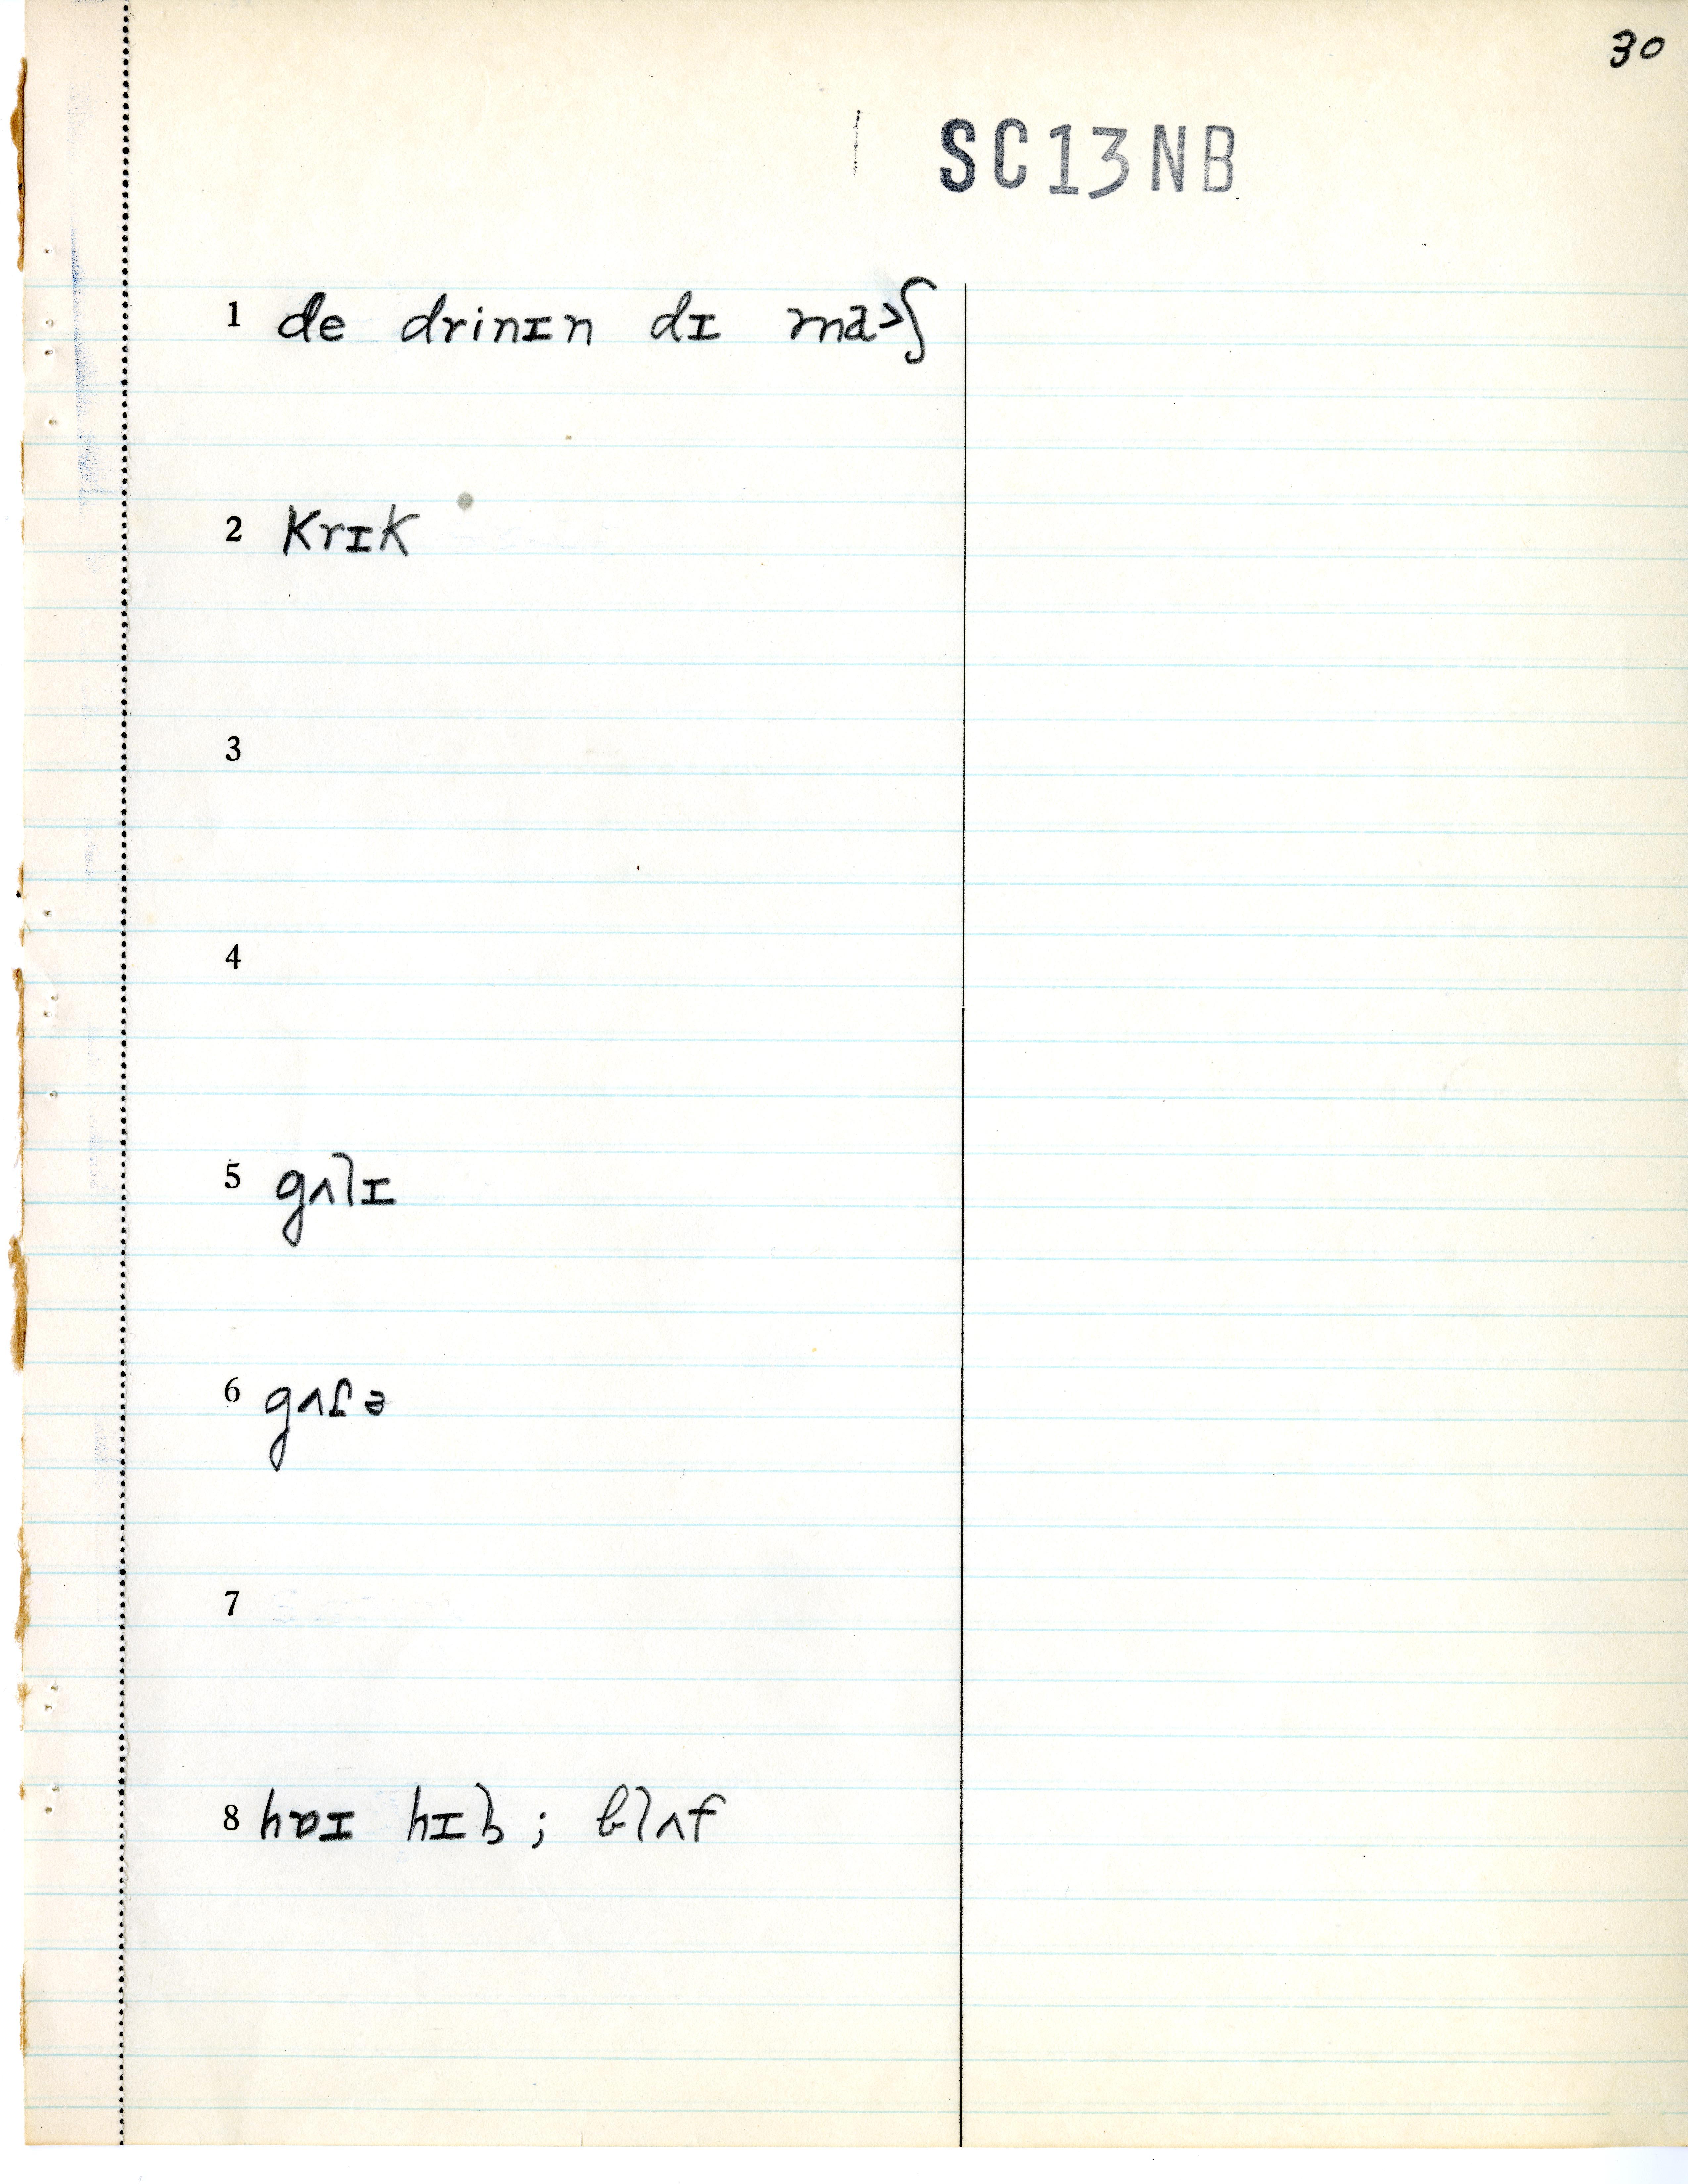 30
SC13NB
1 de drinɪn dɪ ma>ʃ
2 krɪk
3
4
5 gʌlɪ
6 gʌɾə
7
8 hɒɪ hɪl; blʌf